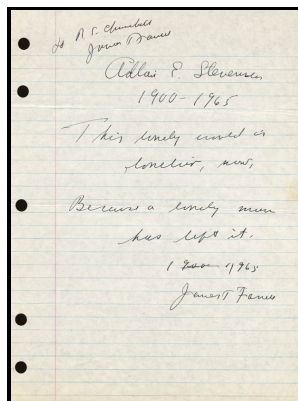 to R S Churchill
James T Farrell
Adlai E Stevenson
1900-1965
This lonely world is
lonelier, now,
Because a lonely man
has left it.
1965
James T Farrell